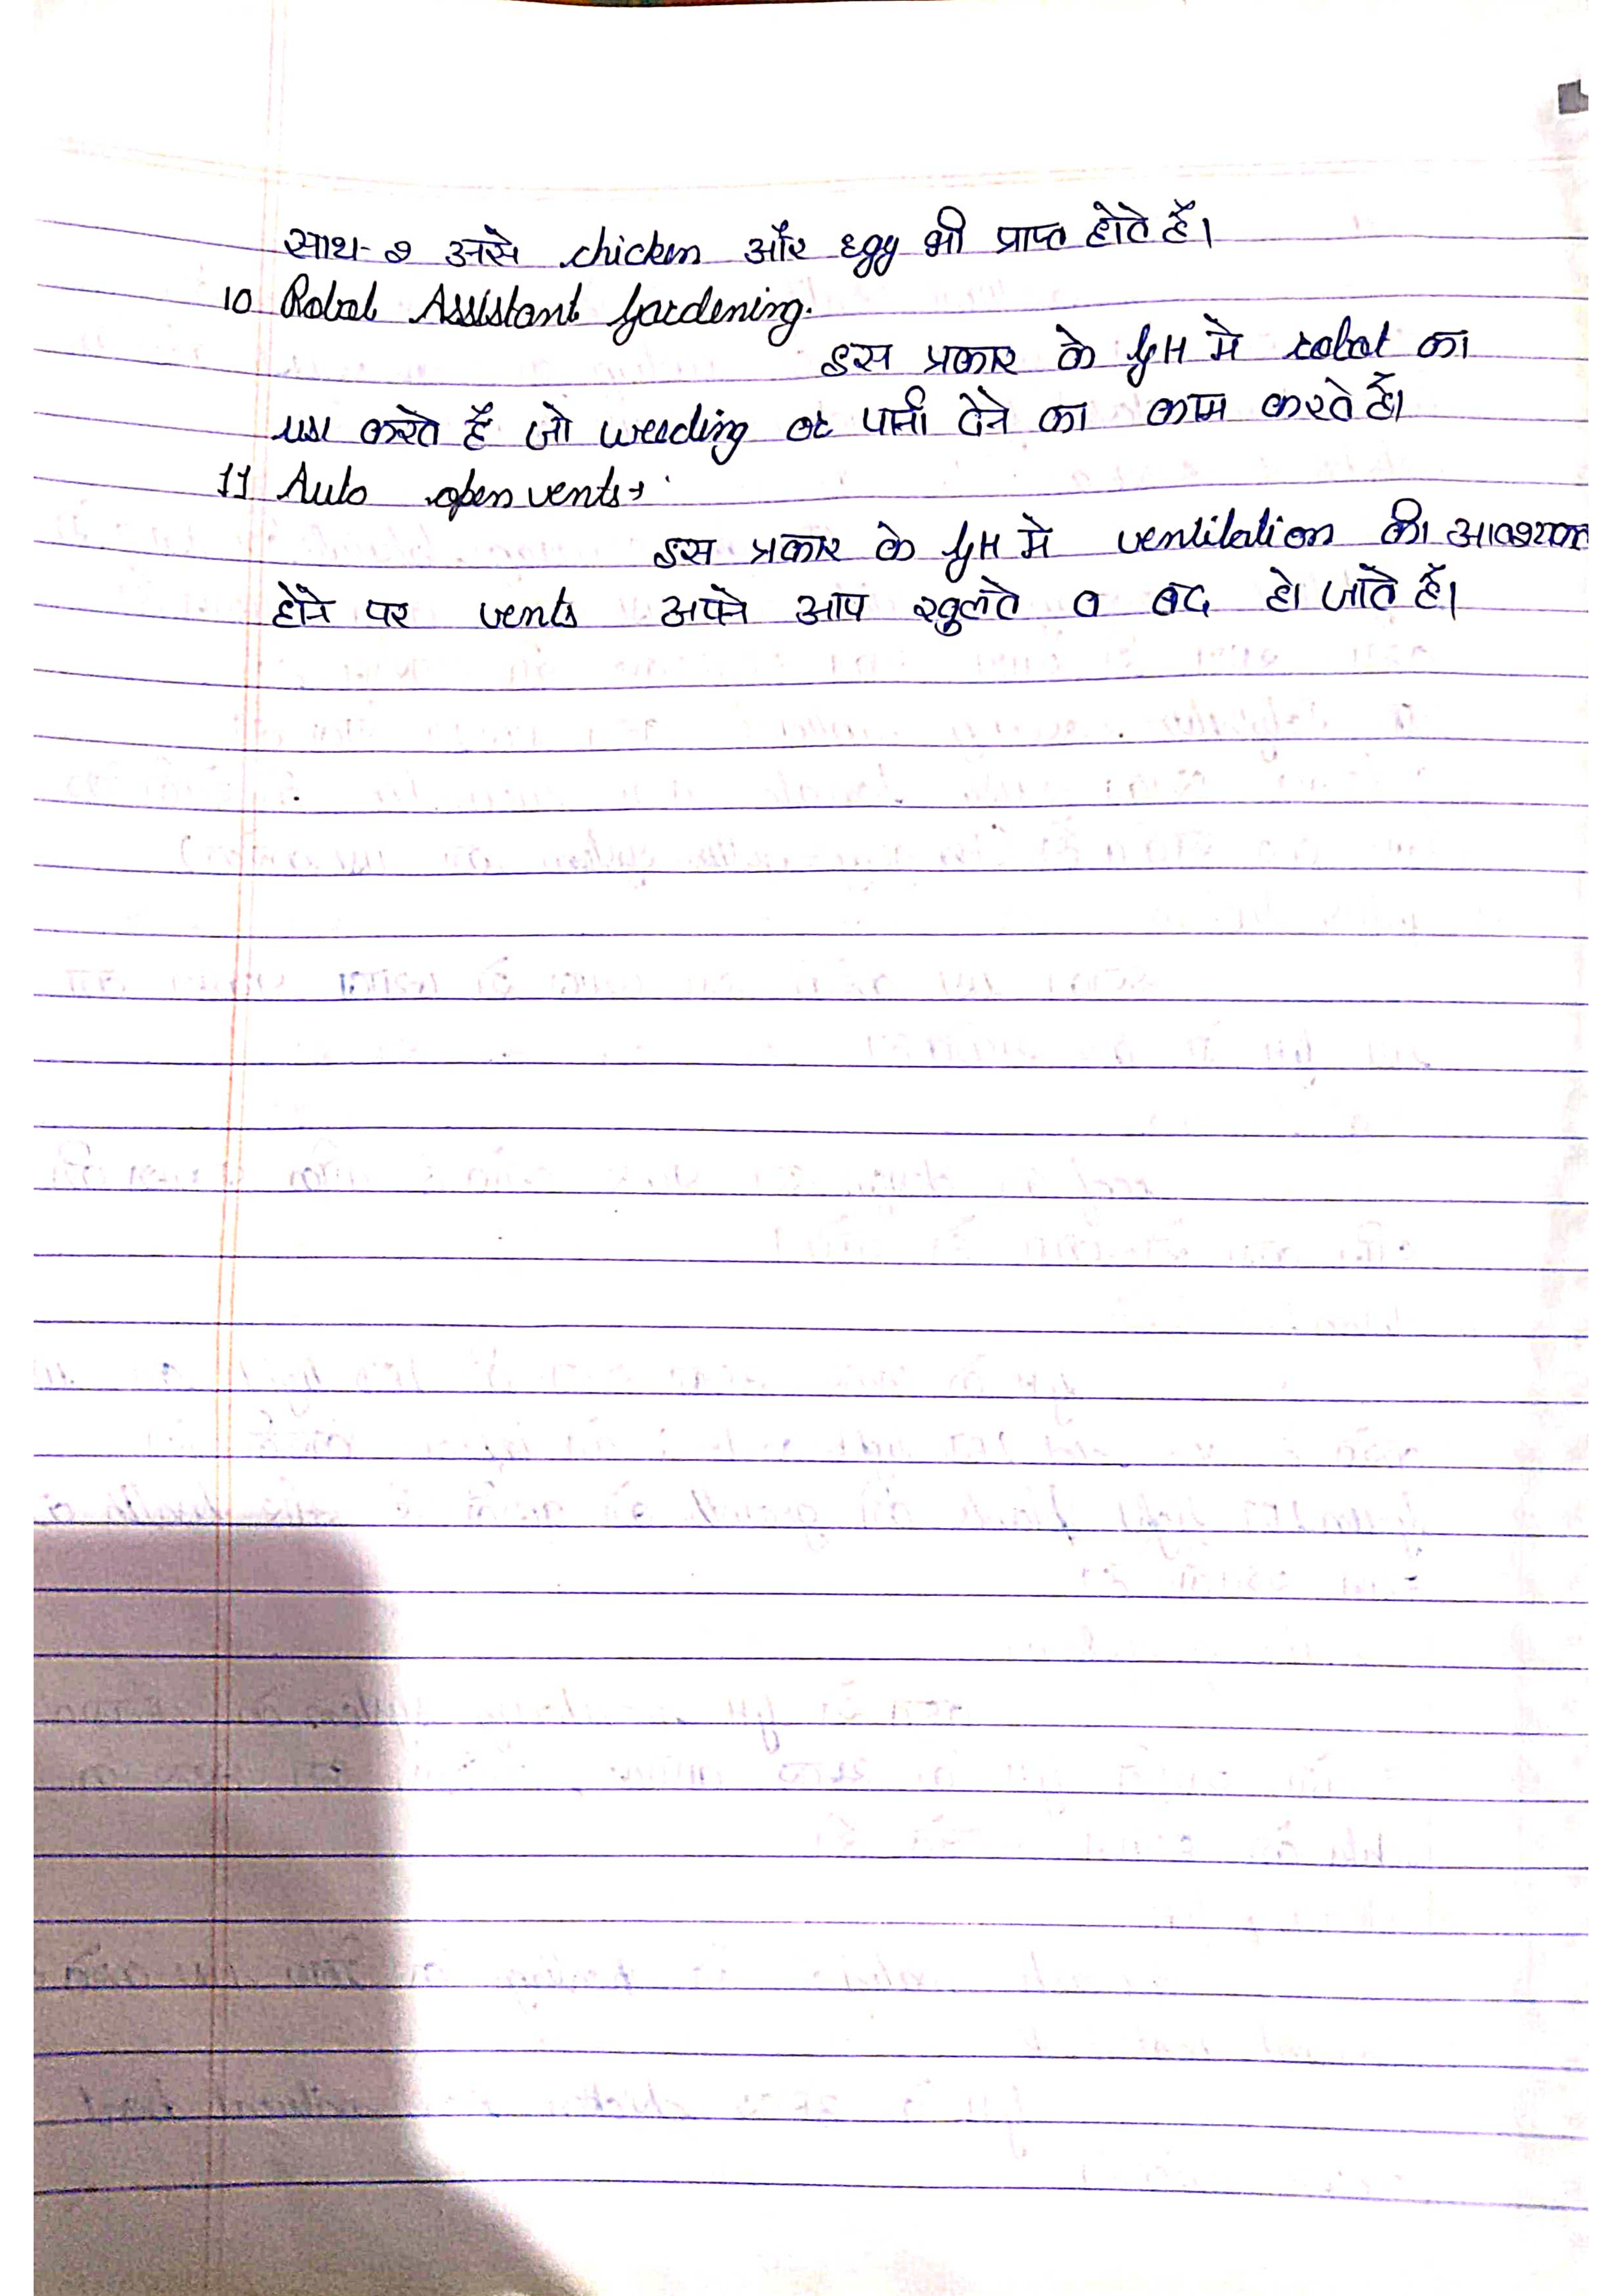 साथ-२ उससे chicken और Egg भी प्राप्त होते हैं।
10 Robot Assistant Gardening.
इस प्रकार के GH मे robot का
use करते हैं जो weeding or पानी देने का काम करते है।
11 Auto open vents→
इस प्रकार के GH मे ventilation की
होने पर vents अपने आप खुलते व बंद हो जाते हैं।